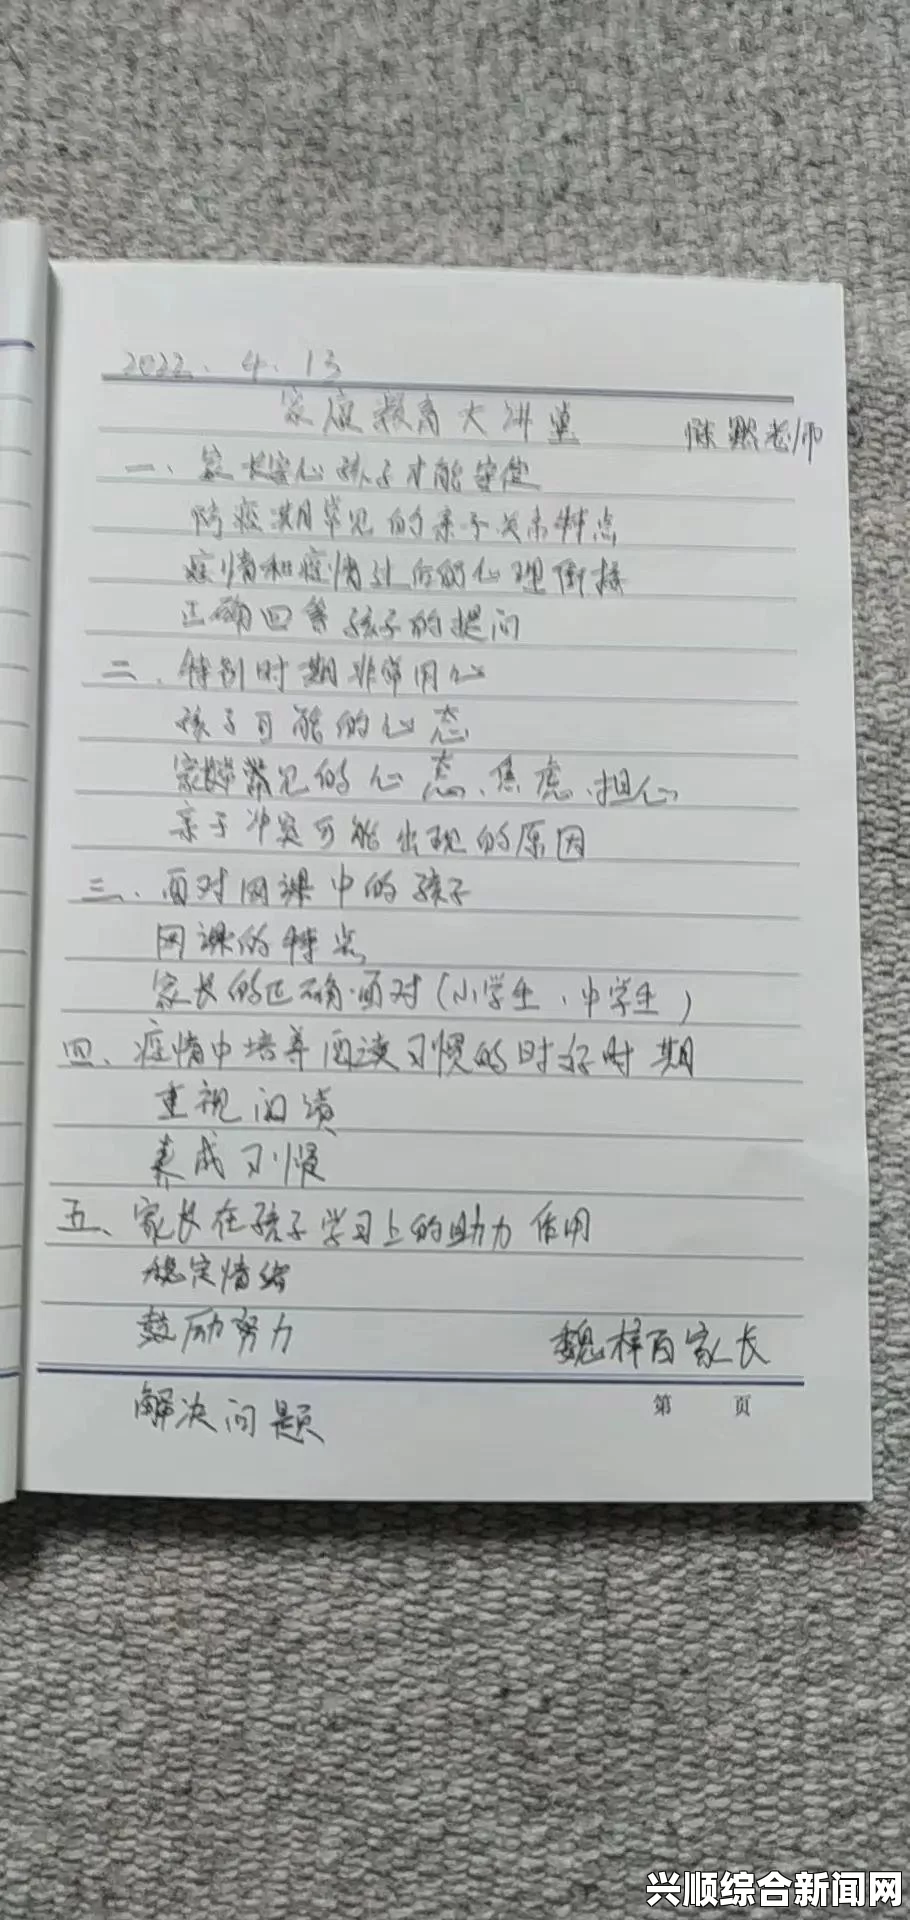 2022.4.13
家庭教育大讲堂
老师
一、家长安心孩子才能安住
防疫期常见的亲子关系特点
疫情和疫情过后的心理衔接
正确回答孩子的提问
二、特别时期非常用心
孩子可能的心态
家长常见的心态、焦虑、担心
亲子冲突可能出现的原因
三、面对网课中的孩子
网课的特点
家长的正确面对(小学生、中学生)
四、疫情中培养阅读习惯的时好时期
重视阅读
养成习惯
五、家长在孩子学习上的助力作用
稳定情绪
鼓励努力
魏梓百家长
第 页
解决问题
兴顺综合新闻网